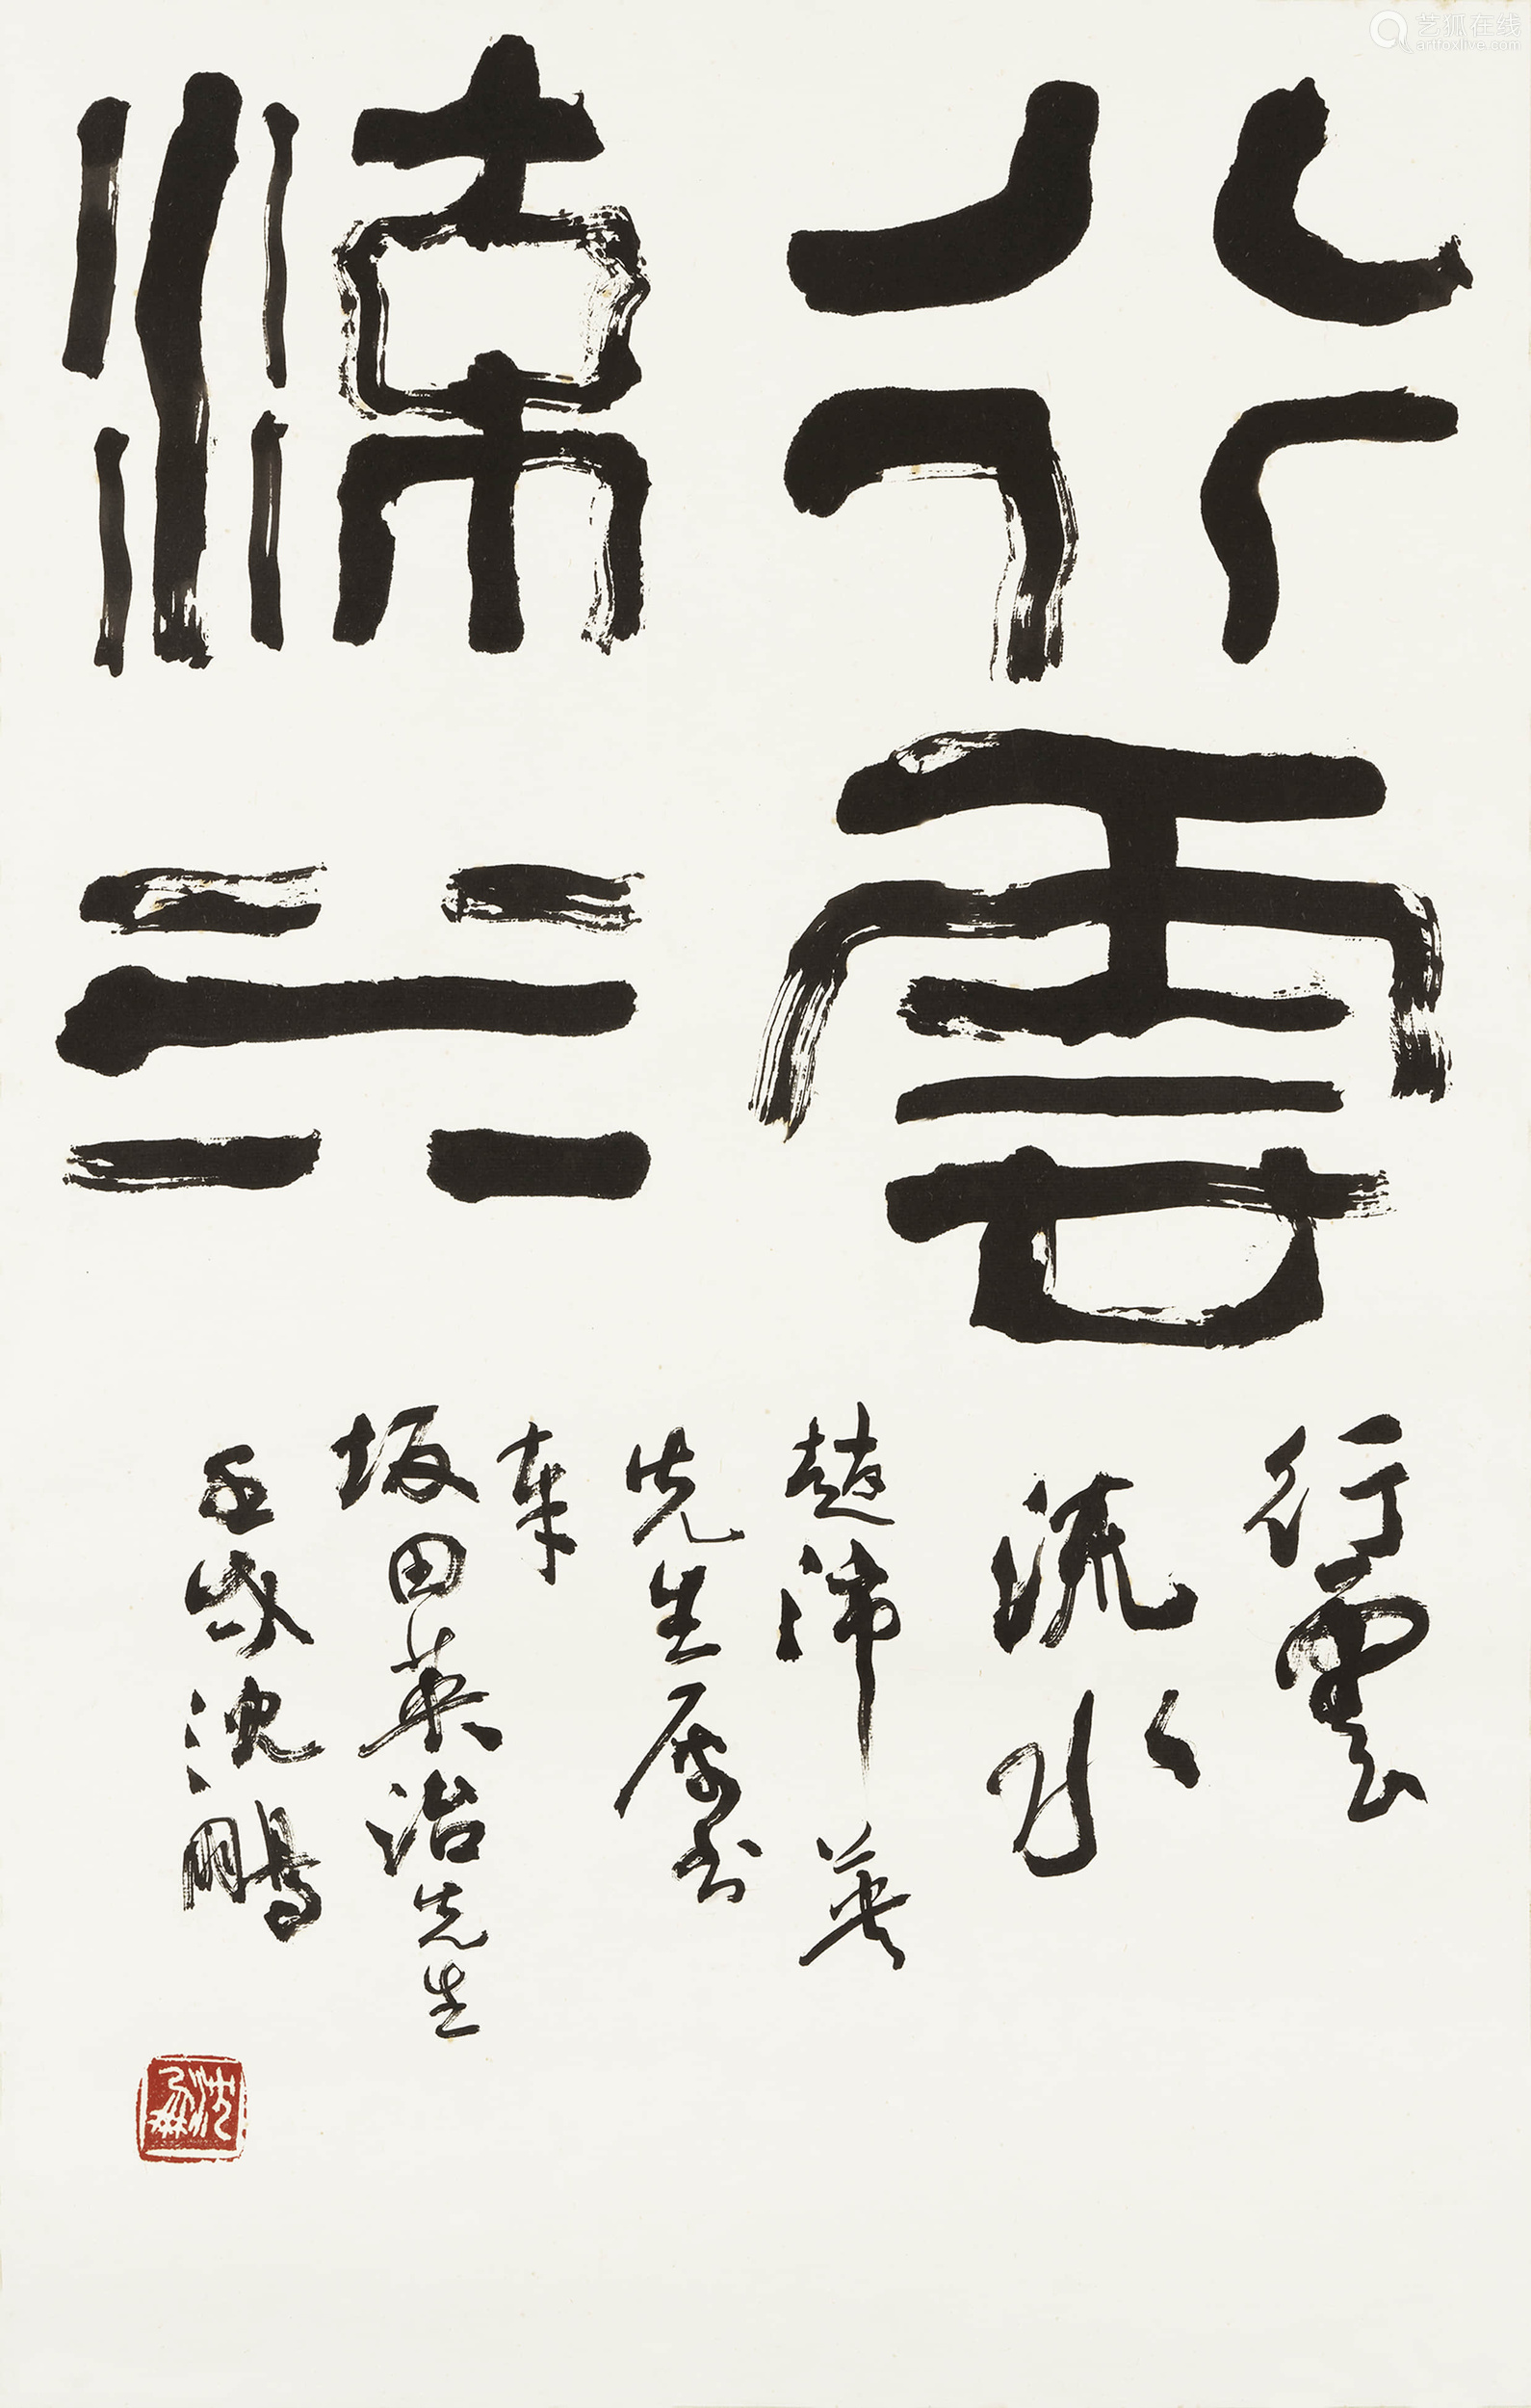 艺狐在线
artfoxlive.com
行雲
流水
行雲
流水
趙沛英
先生屬書
奉
坂田英治先生
壬戌沈鵬
沈鵬